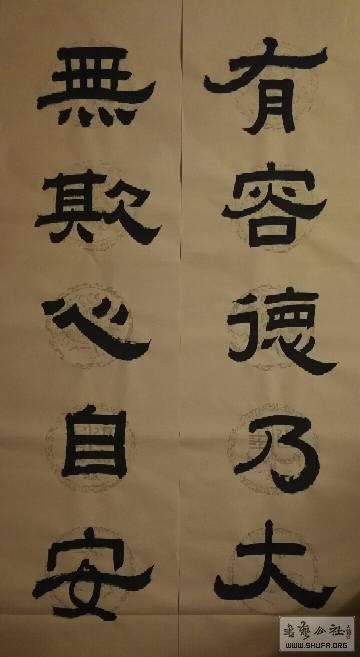 有容德乃大
無欺心自安
WWW.SHUFA.ORG